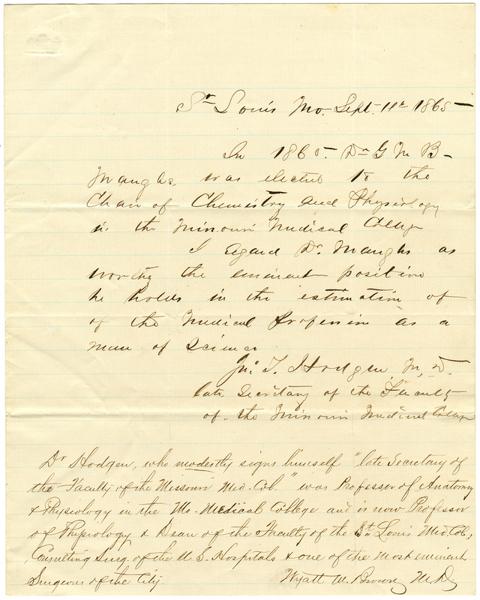 St Louis Mo. Sept. 11th 1865
In 1860. Dr G M B
Maughs was elected to the
Chair of Chemistry and Physiology
in the Missouri Medical College
I regard Dr. Maughs as
worthy the eminent position
he holds in the estimation of
of the Medical Profession as a
man of Science
Jno T. Hodgen M, D.
late Secretary of the Faculty
of the Missouri Medical College
Dr Hodgen, who modestly signs himself "late Secretary of
the Faculty of the Missouri Med. Col." was Professor of Anatomy
& Physiology in the Mo. Medical College and is now Professor
of Physiology & Dean of the Faculty of the St. Louis Med Col,
Consulting Surg. of the U.S. Hospitals & one of the most eminent
Surgeons of the City
Wyatt M. Brown M.D.